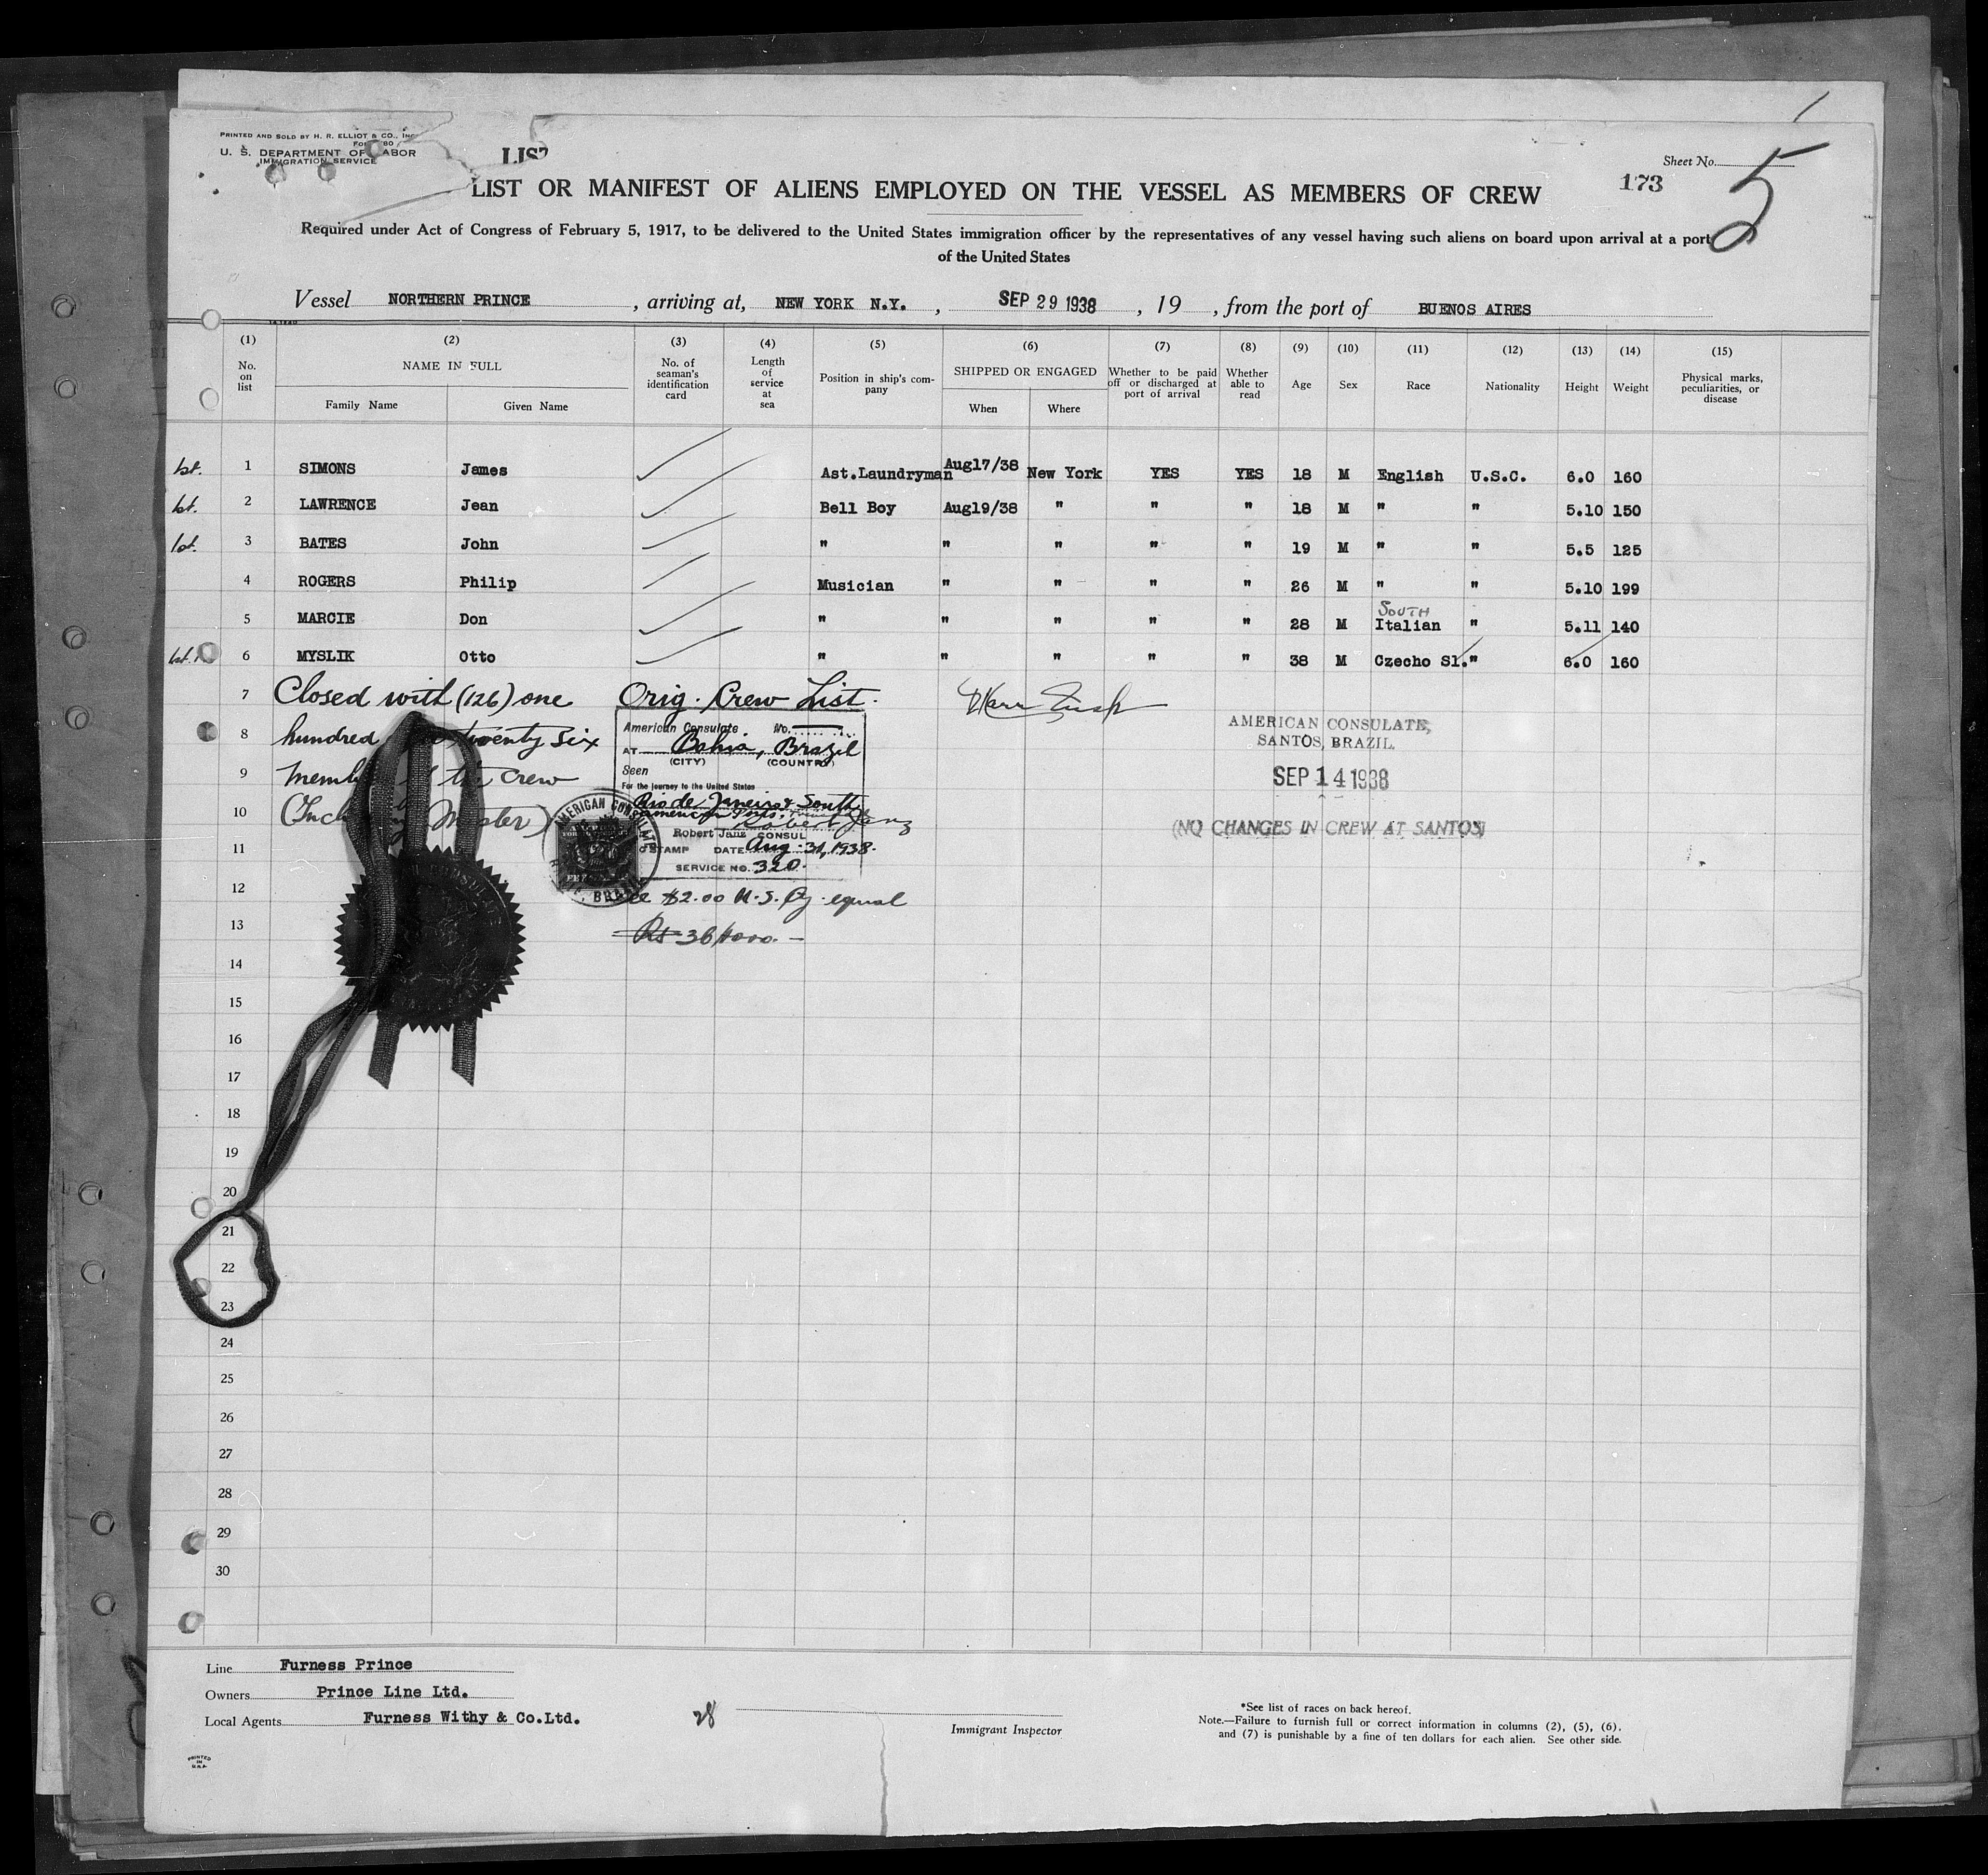 PRINTED AND SOLD BY H. R. ELLIOT & CO., INC
U. S. DEPARTMENT OF LABOR
IMMIGRATION SERVICE
LIST
Sheet No.
173
5
LIST OR MANIFEST OF ALIENS EMPLOYED ON THE VESSEL AS MEMBERS OF CREW
Required under Act of Congress of February 5, 1917, to be delivered to the United States immigration officer by the representatives of any vessel having such aliens on board upon arrival at a port
of the United States
Vessel NORTHERN PRINCE , arriving at, NEW YORK N.Y. , SEP 29 1938 , 19 , from the port of BUENOS AIRES
(1) (2) (3) (4) (5) (6) (7) (8) (9) (10) (11) (12) (13) (14) (15)
No. on list NAME IN FULL Family Name Given Name No. of seaman's identification card Length of service at sea Position in ship's company SHIPPED OR ENGAGED When Where Whether to be paid off or discharged at port of arrival Whether able to read Age Sex Race Nationality Height Weight Physical marks, peculiarities, or disease
1st. 1 SIMONS James Ast.Laundryman Aug17/38 New York YES YES 18 M English U.S.C. 6.0 160
1st. 2 LAWRENCE Jean Bell Boy Aug19/38 " " " 18 M " " 5.10 150
1st. 3 BATES John " " " " " 19 M " " 5.5 125
4 ROGERS Philip Musician " " " " 26 M " " 5.10 199
5 MARCIE Don " " " " " 28 M SOUTH Italian " 5.11 140
1st. 6 MYSLIK Otto " " " " " 38 M Czecho Sl. " 6.0 160
7 Closed with (126) one Orig. Crew List.
8 hundred twenty six
9 crew
10 Master)
American Consulate No.
AT Bahia, Brazil
(CITY) (COUNTRY)
Seen
For the journey to the United States
Rio de Janeiro & South
American Ports.
Robert Janz CONSUL
STAMP DATE Aug. 31, 1938.
SERVICE NO. 320.
AMERICAN CONSULATE
$2.00 U.S. Cy. equal
AMERICAN CONSULATE,
SANTOS, BRAZIL.
SEP 14 1938
(NO CHANGES IN CREW AT SANTOS)
11
12
13
14
15
16
17
18
19
20
21
22
23
24
25
26
27
28
29
30
Line Furness Prince
Owners Prince Line Ltd.
Local Agents Furness Withy & Co.Ltd.
28
Immigrant Inspector
*See list of races on back hereof.
Note.—Failure to furnish full or correct information in columns (2), (5), (6),
and (7) is punishable by a fine of ten dollars for each alien. See other side.
PRINTED
IN
U.S.A.